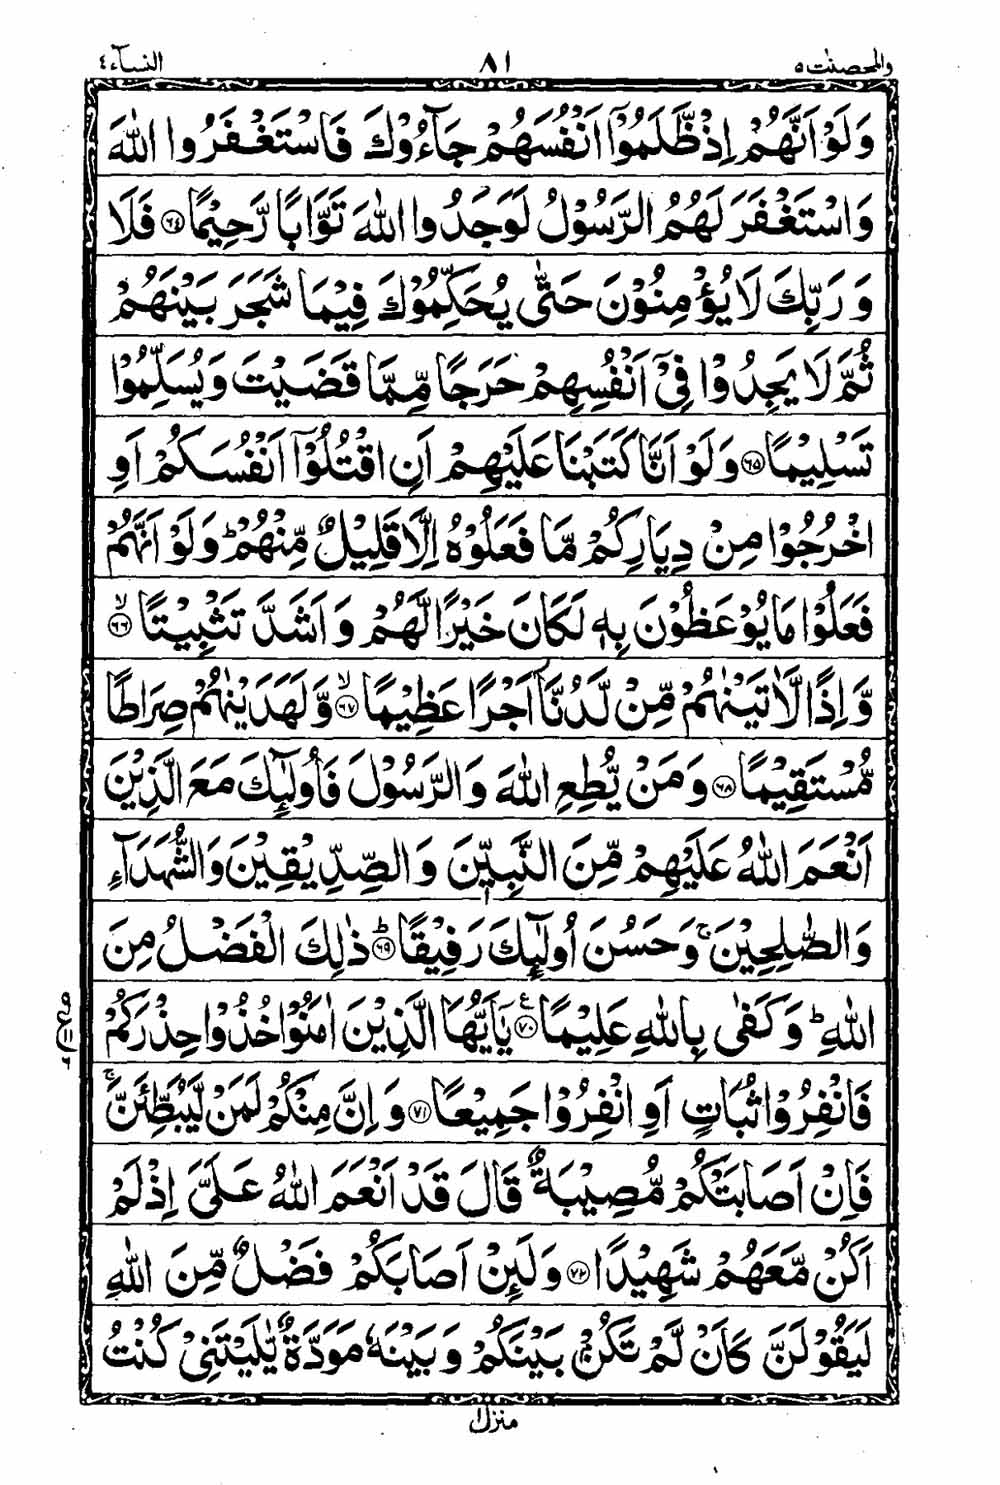 والمحصنت ٥ ٨١ النسآء ٤
وَلَوْ اَنَّهُمْ اِذْ ظَّلَمُوْۤا اَنْفُسَهُمْ جَآءُوْكَ فَاسْتَغْفَرُوا اللّٰهَ
وَاسْتَغْفَرَ لَهُمُ الرَّسُوْلُ لَوَجَدُوا اللّٰهَ تَوَّابًا رَّحِيْمًا ﴿٦٤﴾ فَلَا
وَرَبِّكَ لَا يُؤْمِنُوْنَ حَتّٰى يُحَكِّمُوْكَ فِيْمَا شَجَرَ بَيْنَهُمْ
ثُمَّ لَا يَجِدُوْا فِيْۤ اَنْفُسِهِمْ حَرَجًا مِّمَّا قَضَيْتَ وَيُسَلِّمُوْا
تَسْلِيْمًا ﴿٦٥﴾ وَلَوْ اَنَّا كَتَبْنَا عَلَيْهِمْ اَنِ اقْتُلُوْۤا اَنْفُسَكُمْ اَوِ
اخْرُجُوْا مِنْ دِيَارِكُمْ مَّا فَعَلُوْهُ اِلَّا قَلِيْلٌ مِّنْهُمْ ؕ وَلَوْ اَنَّهُمْ
فَعَلُوْا مَا يُوْعَظُوْنَ بِهٖ لَكَانَ خَيْرًا لَّهُمْ وَاَشَدَّ تَثْبِيْتًا ۙ﴿٦٦﴾
وَّاِذًا لَّاٰتَيْنٰهُمْ مِّنْ لَّدُنَّاۤ اَجْرًا عَظِيْمًا ۙ﴿٦٧﴾ وَّلَهَدَيْنٰهُمْ صِرَاطًا
مُّسْتَقِيْمًا ﴿٦٨﴾ وَمَنْ يُّطِعِ اللّٰهَ وَالرَّسُوْلَ فَاُولٰٓئِكَ مَعَ الَّذِيْنَ
اَنْعَمَ اللّٰهُ عَلَيْهِمْ مِّنَ النَّبِيّٖنَ وَالصِّدِّيْقِيْنَ وَالشُّهَدَآءِ
وَالصّٰلِحِيْنَ ۚ وَحَسُنَ اُولٰٓئِكَ رَفِيْقًا ؕ﴿٦٩﴾ ذٰلِكَ الْفَضْلُ مِنَ
اللّٰهِ ؕ وَكَفٰى بِاللّٰهِ عَلِيْمًا ﴿٧٠﴾ ع يٰۤاَيُّهَا الَّذِيْنَ اٰمَنُوْا خُذُوْا حِذْرَكُمْ
فَانْفِرُوْا ثُبَاتٍ اَوِ انْفِرُوْا جَمِيْعًا ﴿٧١﴾ وَاِنَّ مِنْكُمْ لَمَنْ لَّيُبَطِّئَنَّ ۚ
فَاِنْ اَصَابَتْكُمْ مُّصِيْبَةٌ قَالَ قَدْ اَنْعَمَ اللّٰهُ عَلَيَّ اِذْ لَمْ
اَكُنْ مَّعَهُمْ شَهِيْدًا ﴿٧٢﴾ وَلَئِنْ اَصَابَكُمْ فَضْلٌ مِّنَ اللّٰهِ
لَيَقُوْلَنَّ كَاَنْ لَّمْ تَكُنْۢ بَيْنَكُمْ وَبَيْنَهٗ مَوَدَّةٌ يّٰلَيْتَنِيْ كُنْتُ
منزل ١